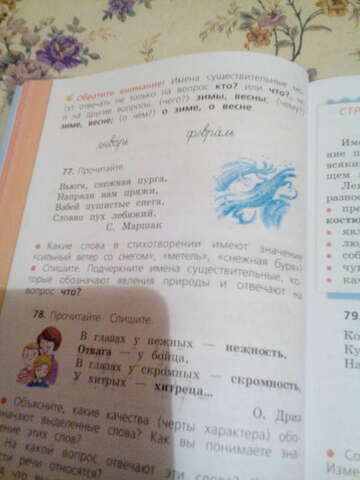 Обратите внимание! Имена существительные мо-
гут отвечать не только на вопрос кто? или что?, но
и на другие вопросы: (чего?) зимы, весны; (чему?)
зиме, весне; (о чём?) о зиме, о весне.
январь февраль
77. Прочитайте.
Вьюги, снежная пурга,
Напряди нам пряжи,
Взбей пушистые снега,
Словно пух лебяжий.
С. Маршак
Какие слова в стихотворении имеют значение
«сильный ветер со снегом», «метель», «снежная буря»?
Спишите. Подчеркните имена существительные, ко-
торые обозначают явления природы и отвечают на
вопрос что?
78. Прочитайте. Спишите.
В глазах у нежных — нежность,
Отвага — у бойца,
В глазах у скромных — скромность,
У хитрых — хитреца...
О. Дриз
Объясните, какие качества (черты характера) обо-
значают выделенные слова? Как вы понимаете зна-
чение этих слов?
На какой вопрос отвечают эти слова?
сти речи относятся?
СТР
Име
ние п
всяки
щем
Ле
разно
костю
явл
лю
со
чу
на
79.
Ко
Ку
На
Со
Изме